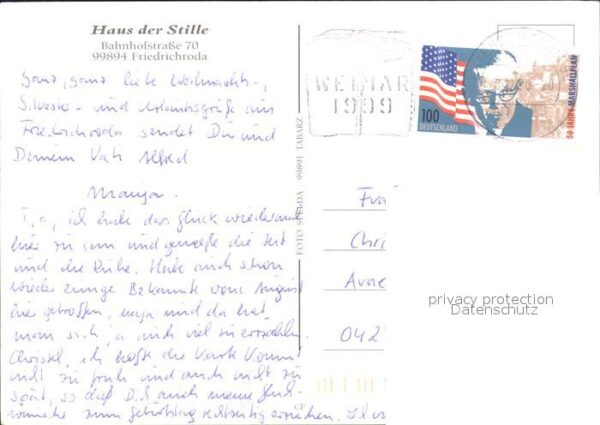 Haus der Stille
Bahnhofstraße 70
99894 Friedrichroda
Ganz, ganz liebe Weihnachts-,
Silvester- und Urlaubsgrüße aus
Friedrichroda sendet Dir und
Deinem Vati Alfred
Manja.
Tja, ich habe das Glück wiederum
hier zu sein und genieße die Zeit
und die Ruhe. Habe auch schon
wieder einige Bekannte vom August
hier getroffen, naja und da hat
man sich ja auch viel zu erzählen.
Christel, ich hoffe die Karte kommt
nicht zu früh und auch nicht zu
spät, so daß Dich auch meine Glück-
wünsche zum Geburtstag rechtzeitig erreichen.
FOTO STREDA 99891 TABARZ
WEIMAR
1999
100
DEUTSCHLAND
50 JAHRE MARSHALLPLAN
Fra
Chri
Anne
042
privacy protection
Datenschutz